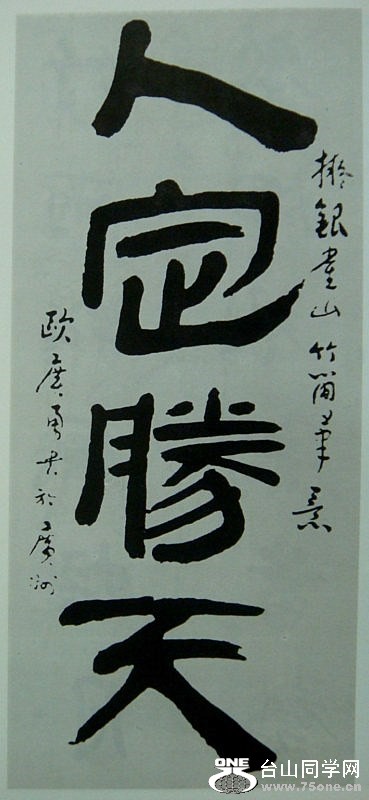 擬銀雀山竹簡筆意
人定勝天
歐廣勇書於廣州
ONE
台山同学网
www.75one.cn